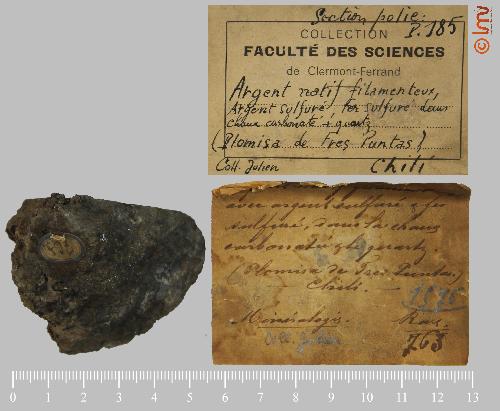 Section polie:
P.185
COLLECTION
FACULTÉ DES SCIENCES
de Clermont-Ferrand
Argent natif filamenteux,
Argent sulfuré fer sulfuré dans
chaux carbonatée & quartz
(Plomisa de Tres Puntas)
Coll. Julien
Chili
lmv
avec argent sulfuré & fer
sulfuré, dans la chaux
carbonatée & le quartz.
(Plomisa de Tres Puntas.)
Chili.
Minéralogie.
Coll. Julien
763
0 1 2 3 4 5 6 7 8 9 10 11 12 13